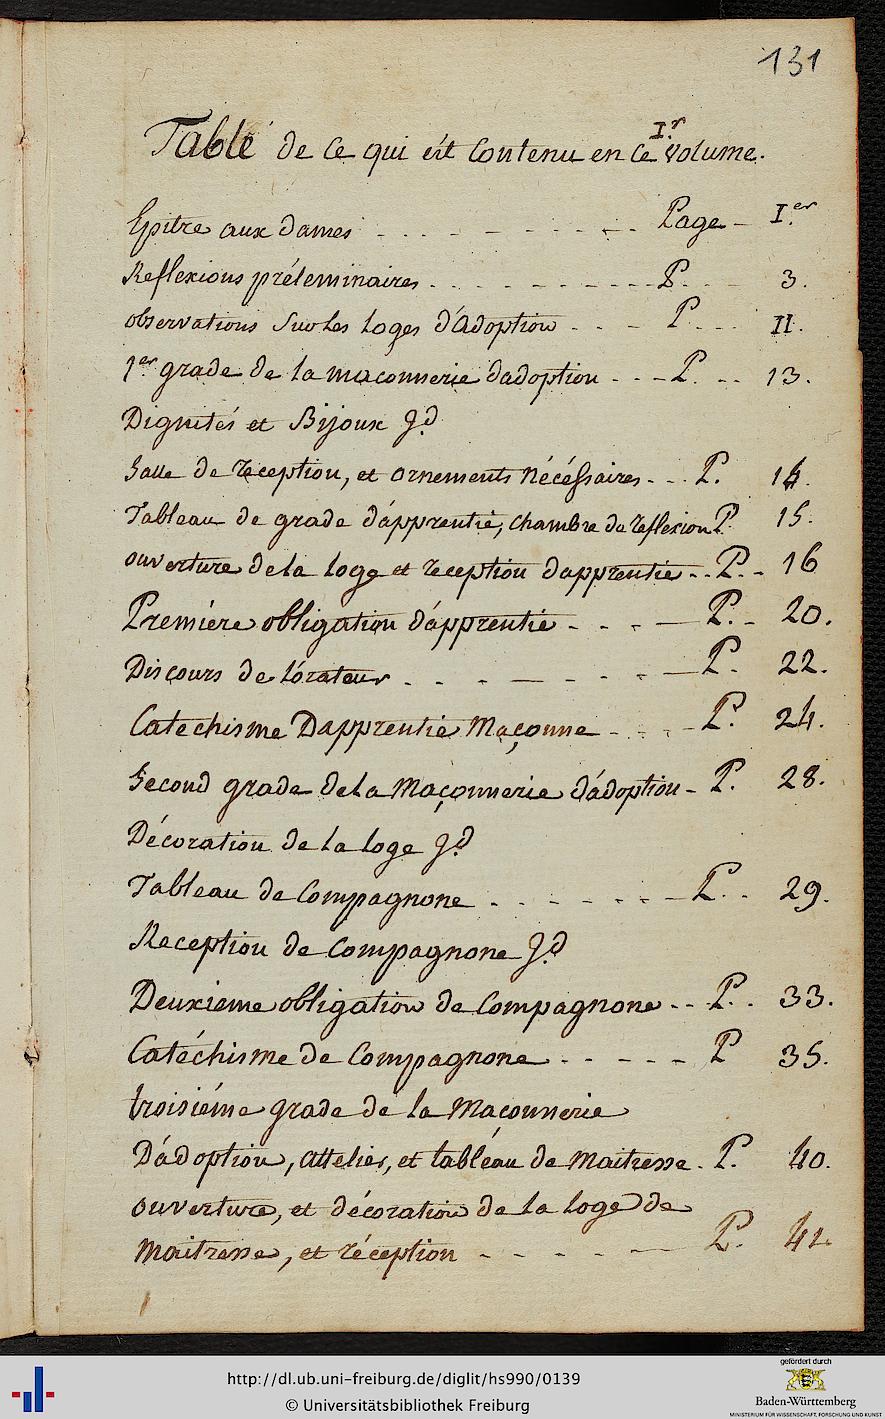 131
Table de ce qui est contenu en ce I.r volume.
Epitre aux dames - - - - - - - - - - Page - I.er
Reflexions préleminaires - - - - - - - - - P. - - - 3.
observations Sur les loges d'Adoption - - - P. - - - II.
1er grade de la maconnerie dadoption - - - P. - - 13.
Dignités et Bijoux J.d
Salle de reception, et ornements nécéssaires - - - P. 14.
Tableau de grade d'apprentie, chambre de reflexion P. 15.
ouverture de la loge et reception dapprentie - - P. - 16
Premiére obligation d'apprentie - - - - - P. - 20.
Discours de l'orateur - - - - - - - - - P. 22.
Catechisme Dapprentie Maçonne - - - - P. 24.
Second grade de la Maçonnerie d'adoption - P. 28.
Décoration de la loge J.d
Tableau de Compagnone - - - - - - - - P. - 29.
Reception de Compagnone J.d
Deuxieme obligation de Compagnone - - P. - 33.
Catéchisme de Compagnone - - - - - P 35.
troisiéme grade de la Maconnerie
D'adoption, attelier, et tabléau de maitresse - P. 40.
ouverture, et décoration de la loge de
maitresse, et réception - - - - - - P. 42.
http://dl.ub.uni-freiburg.de/diglit/hs990/0139
© Universitätsbibliothek Freiburg
gefördert durch
Baden-Württemberg
MINISTERIUM FÜR WISSENSCHAFT, FORSCHUNG UND KUNST